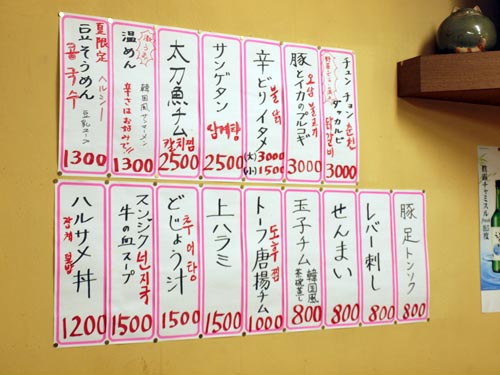 チュンチョン 춘천
野菜たっぷり
タッカルビ
닭갈비
3000
豚とイカのプルコギ
오삼불고기
3000
辛どりイタメ
불닭
(大)3000
(小)1500
サンゲタン
삼계탕
2500
太刀魚チム
갈치찜
2500
温めん
韓国風サンサメン
辛さはお好みで!!
1300
夏限定
ヘルシー
豆そうめん
콩국수
豆乳スープ
1300
豚足トンソク
800
レバー刺し
800
せんまい
800
玉子チム
韓国風
茶碗蒸し
800
トーフ唐揚チム
도후찜
1000
上ハラミ
1500
どじょう汁
추어탕
1500
スンジク
선지국
牛の血スープ
1500
ハルサメ丼
잡채덮밥
1200
韓国チャミスル